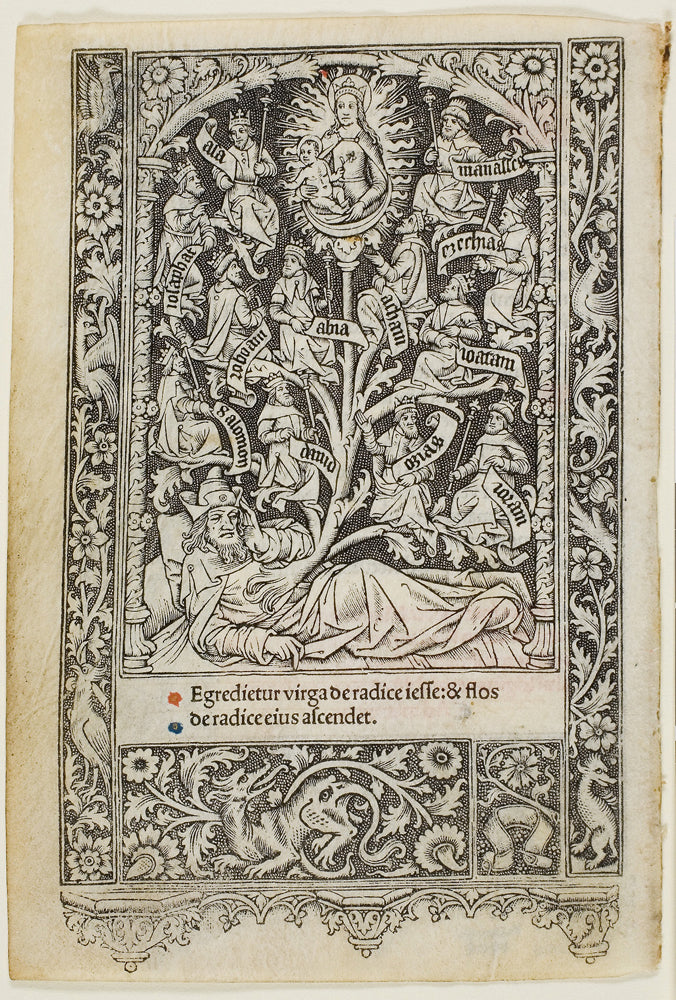 aſa
manaſſes
ioſaphat
ezechias
roboam
abia
acham
ioatam
Salomon
dauid
oſias
ioram
Egredietur virga de radice ieſſe: & flos
de radice eius aſcendet.